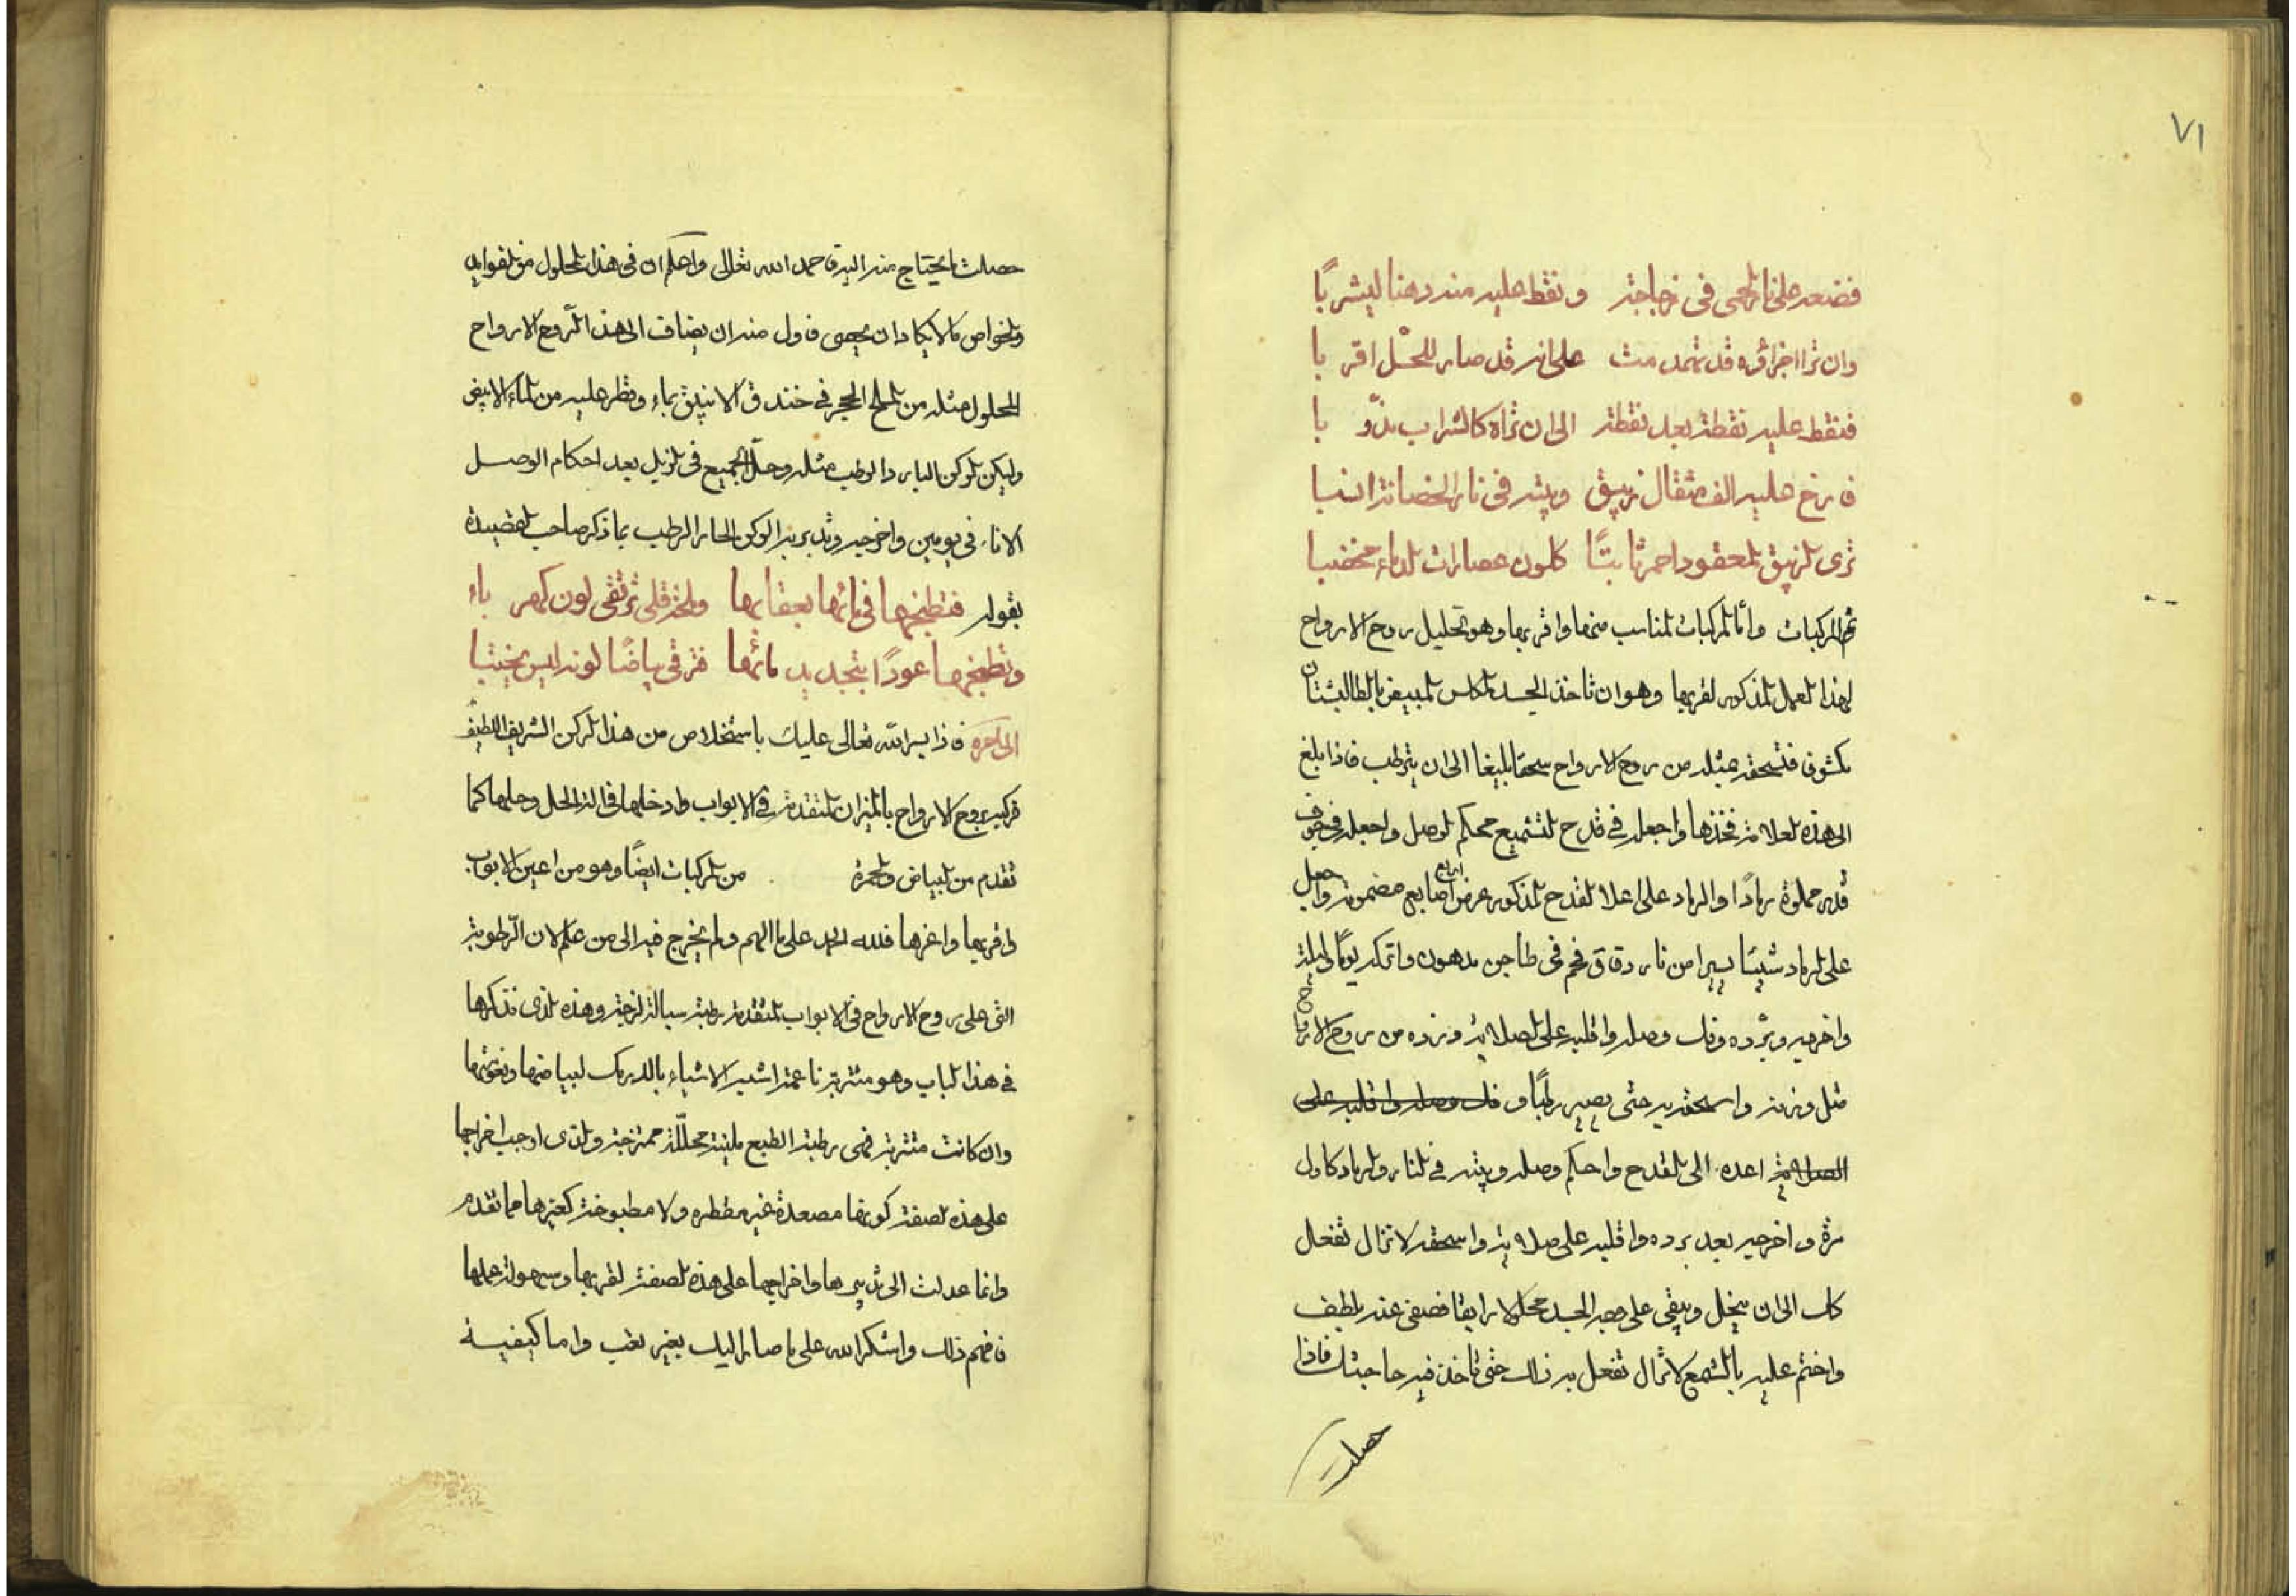 ٧١
فضعه على نار لحمى فى زجاجة ونقط عليه منه دهنا ليشربًا
وان ترا اجزاؤه قد تهدمت على انه قد صار للحل اقربا
فنقط عليه نقطة بعد نقطة الى ان تراه كالشراب مذوبا
فارخ عليه الف مثقال زيبق وبيته فى نار الحضانة انسبا
ترى الزيبق المعقود احمر ثابتًا كلون عصارات الدماء مخضبا
المركبات وأما المركبات المناسب منها واقربها وهو تحليل روح الارواح
لهذا العمل المذكور لقربها وهو ان تاخذ الجسد المكلس المبيض بالطاليتان
مكشوفا فتسحقه بمثله من روح الارواح سحقا بليغا الى ان يترطب فاذا بلغ
الى هذه العلامة فخذها واجعله فى قدح التشميع محكم الوصل واجعله فى جوف
قدر مملوة رمادًا والرماد على اعلا القدح المذكور عرض اربع اصابع مضمومة واجعل
على الرماد شيئا يسيرا من نار دقاق فحم فى طاجن مدهون واتركه يومًا وليلة
واخرجه وبرّده وفك وصله واقلبه على الصلاية وزده من روح الارواح
مثل وزنه واسحقه به حتى يصير رطبًا و فك وصله واقلبه على
الصلاية ثم اعده الى القدح واحكم وصله وبيته فى النار والرماد كاول
مرة واخرجه بعد برده واقلبه على صلاية واسحقه لا تزال تفعل
كك الى ان ينحل ويبقى على وجه الجسد محلولا رايقا فصفى عنه بلطف
واختم عليه بالشمع لا تزال تفعل به ذلك حتى تاخذ فيه حاجتك فاذا
حصلت
حصلت ما يحتاج منه اليه فاحمد الله تعالى واعلم ان فى هذا المحلول من الفوايد
والخواص ما لا يكاد ان يحصى فاول منه ان يضاف الى هذا الروح الارواح
المحلول مثله من الملح الحجر فى خندق الانبيق بماء وقطر عليه من الماء الابيض
وليكن الركن البارد الرطب مثله وحلّ الجميع فى الزبل بعد احكام الوصل
الاناء فى يومين واخرجه وتدبر به الركن الحار الرطب بما ذكر صاحب القصيدة
بقوله فتطبخها فى مائها بعقارها والخرقلى ترتقى لون كهرباء
وتطبخها عودًا بتجديد مائها فترقى بياضًا لونه ابيض يختبا
الى آخره فاذا يسر الله تعالى عليك باستخلاص من هذا الركن الشريف اللطيف
فركبه بروح الارواح بالميزان المتقدمة فى الابواب وادخلها فى الة الحل وحلها كما
تقدم من البياض والحمرة من المركبات ايضًا وهو من اعين الابواب
واقربها واعزها فلله الحمد على ما الهم ولم يخرج فيه الى من علم لان الرطوبة
التى على روح الارواح فى الابواب المتقدمة رطبة سيالة لزجة وهذه الذى نذكرها
فى هذا الباب وهو متتربة ناعمة اشبه الاشياء بالدرمك لبياضها ونعومتها
وان كانت متتربة فهى رطبة الطبع ملينة محللة ممتزجة والذى اوجب اخراجها
على هذه الصفة كونها مصعدة غير مقطره ولا مطبوخة كغيرها مما تقدم
وانما عدلت الى تدبيرها واخراجها على هذه الصفة لقربها وسهولة عملها
فافهم ذلك واشكر الله على ما صار اليك بغير تعب واما كيفية